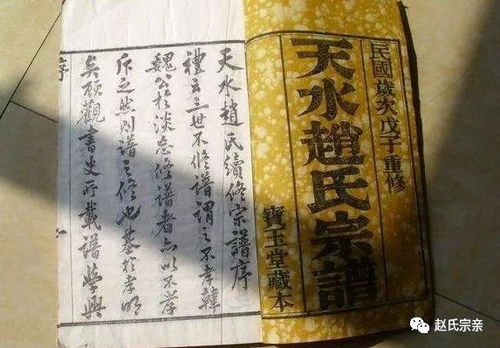 民國歲次戊子重修
天水趙氏宗譜
寶玉堂藏本
天水趙氏續修宗譜序
禮云三世不修譜謂之不孝韓
魏公於淡忘修譜者亦以不孝
斥之然則譜之修也基於孝明
矣稽觀書史所載譜學興
序
赵氏宗亲